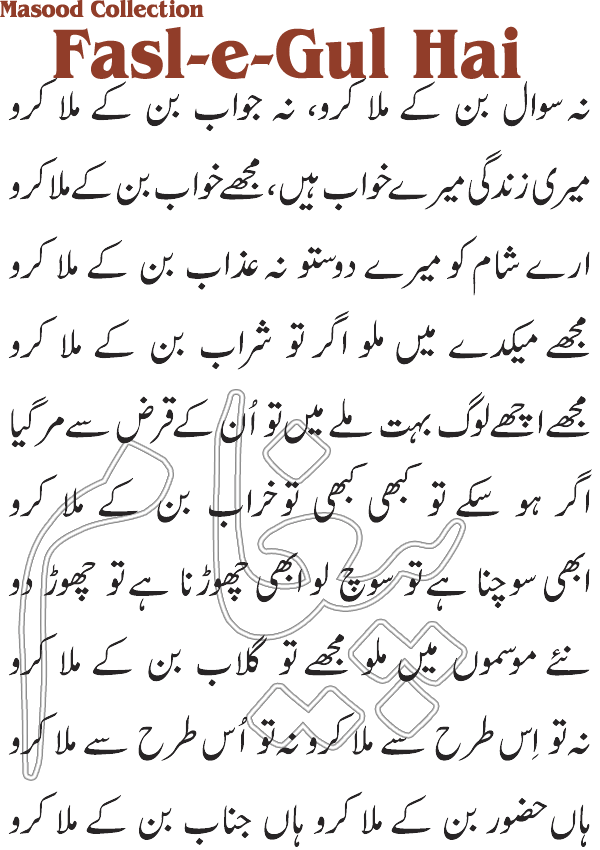 Masood Collection
Fasl-e-Gul Hai
نہ سوال بن کے ملا کرو، نہ جواب بن کے ملا کرو
میری زندگی میرے خواب ہیں، مجھے خواب بن کے ملا کرو
ارے شام کو میرے دوستو نہ عذاب بن کے ملا کرو
مجھے میکدے میں ملو اگر تو شراب بن کے ملا کرو
مجھے اچھے لوگ بہت ملے میں تو اُن کے قرض سے مر گیا
اگر ہو سکے تو کبھی کبھی تو خراب بن کے ملا کرو
ابھی سوچنا ہے تو سوچ لو ابھی چھوڑنا ہے تو چھوڑ دو
نئے موسموں میں ملو مجھے تو گلاب بن کے ملا کرو
نہ تو اِس طرح سے ملا کرو نہ تو اُس طرح سے ملا کرو
ہاں حضور بن کے ملا کرو ہاں جناب بن کے ملا کرو
پیغام